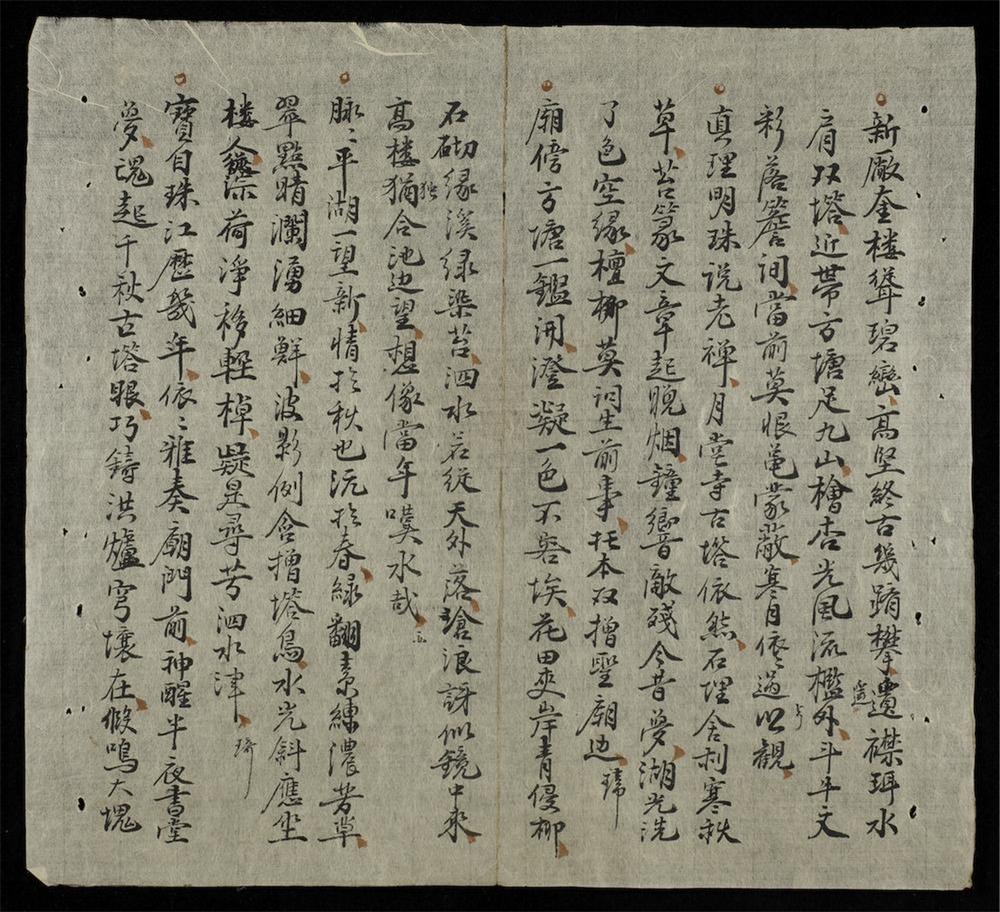 新廠奎楼聳碧巒高堅終古幾躋攀遶襟珥水
肩双塔近帯方塘足九山檜杏光風流檻外斗牛文
彩落簷间當前莫恨黽蒙蔽寒月依〻過町觀
真理明珠说老禅月堂寺古塔依然石埋舍利寒秋
草苔篆文章起晚烟鐘響敲殘今昔夢湖光洗
了色空缘檀椰莫问生前事在本双撎聖廟边 瑋
廟傍方塘一鑑開澄凝一色不容埃花田夾岸青侵柳
石砌缘溪绿染苔泗水若従天外落滄浪訝似鏡中來
高楼猶合池边望想像當年嘆水哉
脉〻平湖一望新情於秋也沅於春緑翻素練濃芳草
翠點晴瀾湧細鮮波影倒含撎塔鳥水光斜應坐
楼人深荷淨移輕棹疑是尋芳泗水津 琦
寶自珠江歷幾年依〻雅奏廟門前神醒半夜書堂
夢魂起千秋古塔眼巧鋳洪爐穹壤在倏鳴大塊